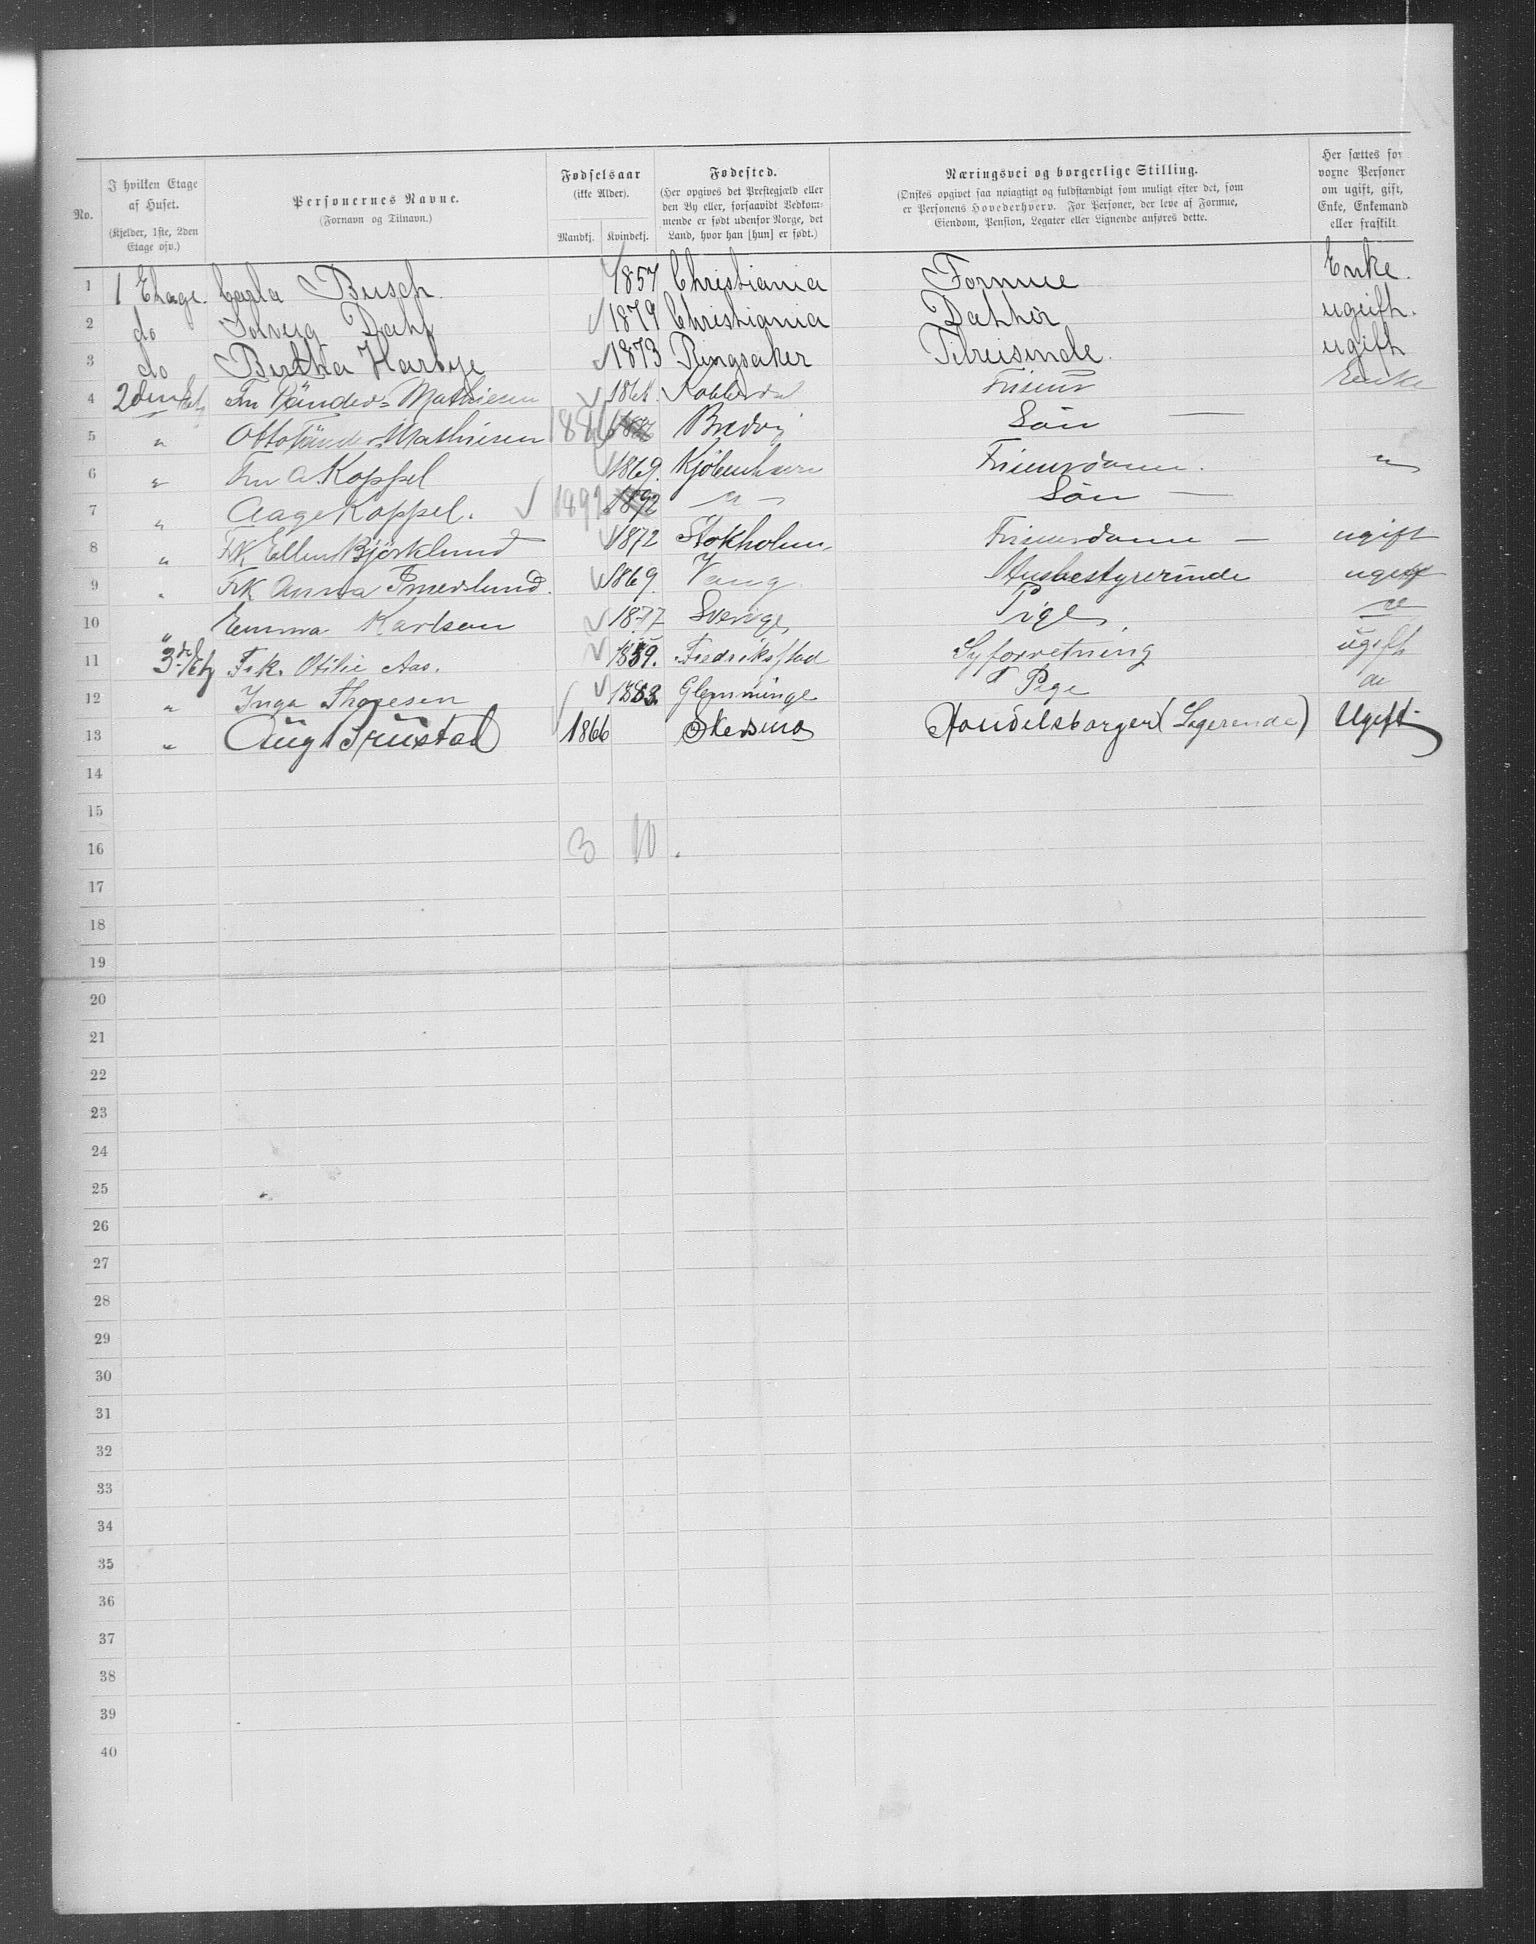 No.
I hvilken Etage af Huset. (Kjelder, 1ste, 2den Etage osv.)
Personernes Navne. (Fornavn og Tilnavn.)
Fødselsaar (ikke Alder). Mandkj. Kvindekj.
Fødested. (Her opgives det Prestegjæld eller den By eller, forsaavidt Vedkommende er født udenfor Norge, det Land, hvor han [hun] er født.)
Næringsvei og borgerlige Stilling. (Ønskes opgivet saa nøiagtigt og fuldstændigt som muligt efter det, som er Personens Hovederhverv. For Personer, der leve af Formue, Eiendom, Pension, Legater eller Lignende anføres dette.)
Her sættes for vorne Personer om ugift, gift, Enke, Enkemand eller fraskilt
1 1 Etage. Carla Busch 1857 Christiania Formue Enke.
2 do Solveig Dahl 1879 Christiania Datter ugift.
3 do Bertha Harbye 1873 Ringsaker Tilreisende. ugift
4 2den Etg Fru Tønder= Mathiesen 186 Friseur Enke
5 " Otto Tønder Mathiesen 188 Søn —
6 " Fru A. Koppel 1869. Kjøbenhavn Friseurdame. "
7 " Aage Koppel. 1892 1892 " — Søn —
8 " Frk Ellen Björklund 1872 Stokholm Friseurdame — ugift
9 " Frk Anna 1869. Vang Husbestyrerinde ugift
10 " Emma Karlsen 1877 Sverige Pige
11 3die Etg Frk. Otilie Aas. 1859. Fredriksstad Syforretning ugift
12 " Inga Thoresen 1883. Glemminge Pige do
13 " Aug Trustad 1866 Skedsmo Handelsborger (Logerende) Ugift
14
15
16 3 10.
17
18
19
20
21
22
23
24
25
26
27
28
29
30
31
32
33
34
35
36
37
38
39
40